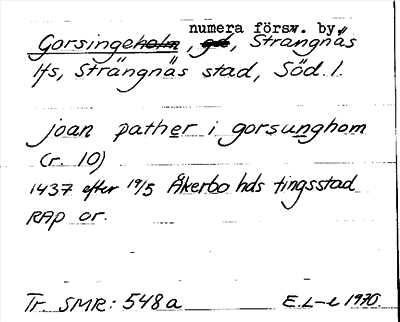 numera försv. by
Gorsingeholm, gd, Strängnäs
lfs, Strängnäs stad, Söd. l.
joan pather i gorsunghom
(r. 10)
1437 efter 19/5 Åkerbo hds tingsstad
RAp or.
Tr. SMR: 548a E.L-e 1970.